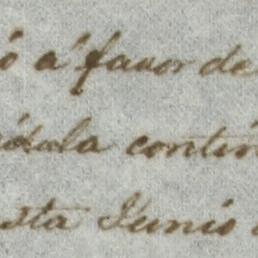 ó á favor de
édula contin
sta Junio